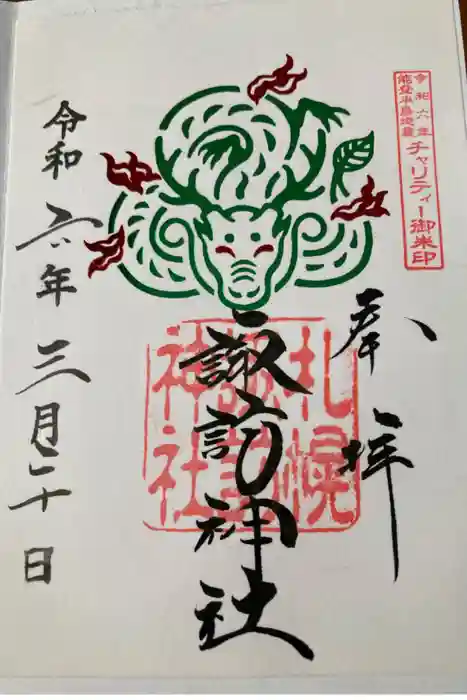 令和六年
能登半島地震
チャリティー御朱印
奉拝
諏訪神社
札幌
諏訪
神社
令和六年三月二十日